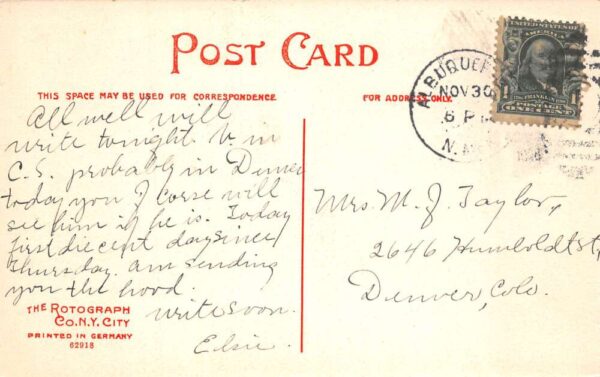 POST CARD
THIS SPACE MAY BE USED FOR CORRESPONDENCE
FOR ADDRESS ONLY.
All well will
write tonight. V. in
C. S. probably in Denver
today you of corse will
see him if he is. Today
first diecent day since
Thursday. am sending
you the hood.
write soon.
Elsie.
THE ROTOGRAPH
CO. N.Y. CITY
PRINTED IN GERMANY
62918
ALBUQUER
NOV 30
6 P
N. M
UNITED STATES OF
AMERICA
FRANKLIN
1 1
POSTAGE
ONE CENT
Mrs. M. J. Taylor,
2646 Humboldt St,
Denver, Colo.